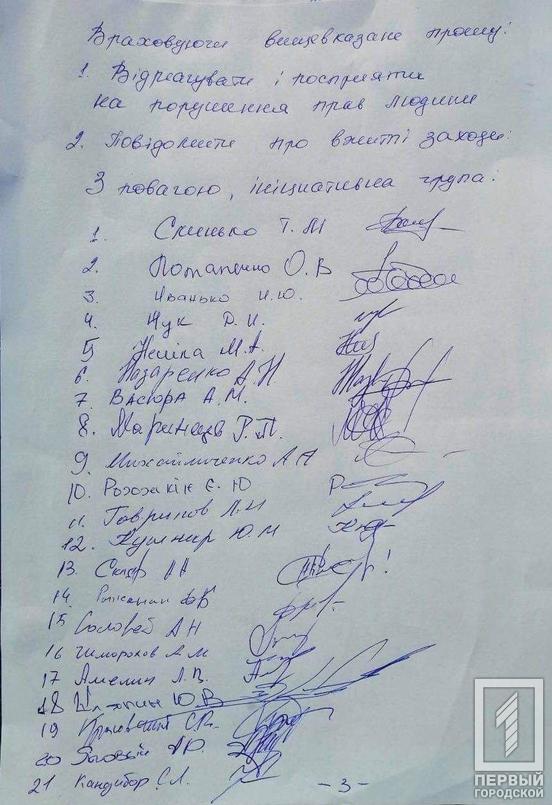 Враховуючи вищевказане прошу:
1. Відреагувати і посприяти
на порушення прав людини
2. Повідомити про вжиті заходи.
З повагою, ініціативна група:
1 Скинько Т. М
2. Потапенко О. В
3 Іванько И. Ю.
4. Жук Д. И.
5 М. А.
6. Назаренко А. Н
7 Васюра А. М.
8. Р. П.
9. Михайличенко А А
10. Розсахін Є. Ю
11. Гаврилов Л. И
12. Кушнир Ю. М
13. А А
14.
15 Соловей А Н
16 Чиморохов А. М
17 Амелин Л. В.
18 Шляпин Ю. В
19
20
21 Кандибор. С. Л.
- 3 -
1
ПЕРВЫЙ
ГОРОДСКОЙ